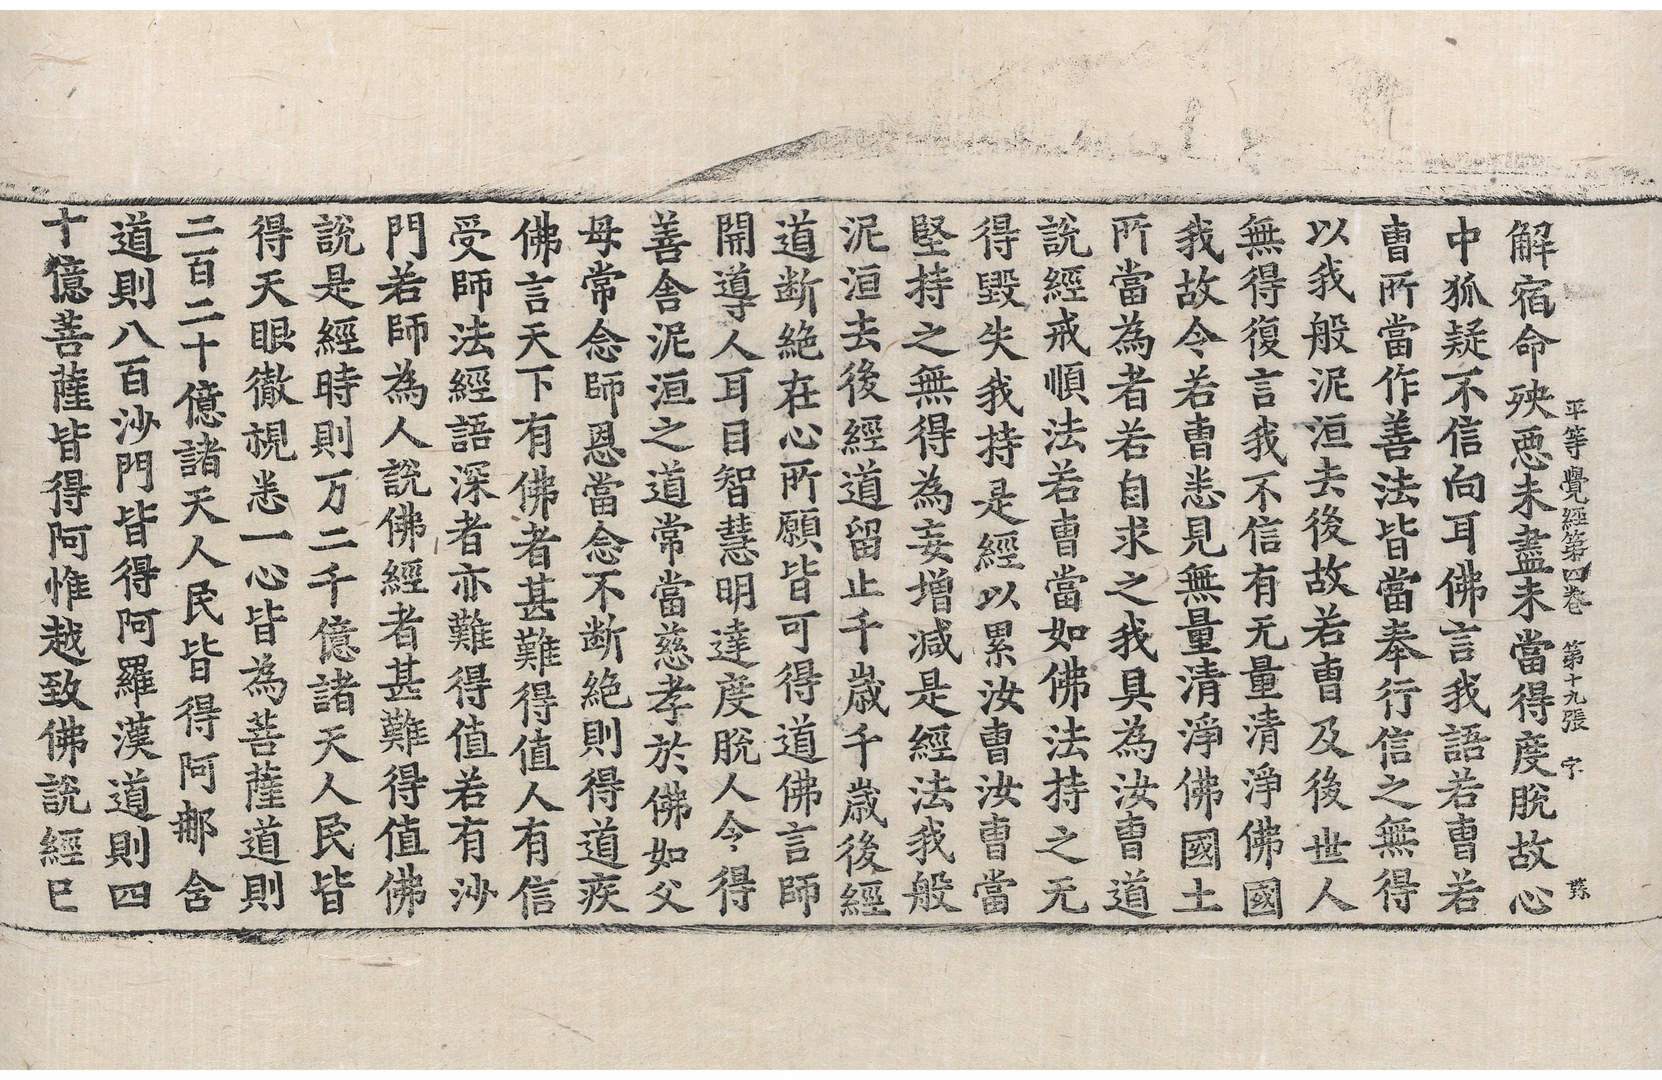 平等覺經第四卷 第十九張 字
解宿命殃惡未盡未當得度脫故心
中狐疑不信向耳佛言我語若曹若
曹所當作善法皆當奉行信之無得
以我般泥洹去後故若曹及後世人
無得復言我不信有无量清淨佛國
我故令若曹悉見無量清淨佛國土
所當為者若自求之我具為汝曹道
說經戒順法若曹當如佛法持之无
得毀失我持是經以累汝曹汝曹當
堅持之無得為妄增減是經法我般
泥洹去後經道留止千歲千歲後經
道断絶在心所願皆可得道佛言師
開導人耳目智慧明達度脫人令得
善舍泥洹之道常當慈孝於佛如父
母常念師恩當念不断絶則得道疾
佛言天下有佛者甚難得值人有信
受師法經語深者亦難得值若有沙
門若師為人說佛經者甚難得值佛
說是經時則万二千億諸天人民皆
得天眼徹視悉一心皆為菩薩道則
二百二十億諸天人民皆得阿那含
道則八百沙門皆得阿羅漢道則四
十億菩薩皆得阿惟越致佛說經已